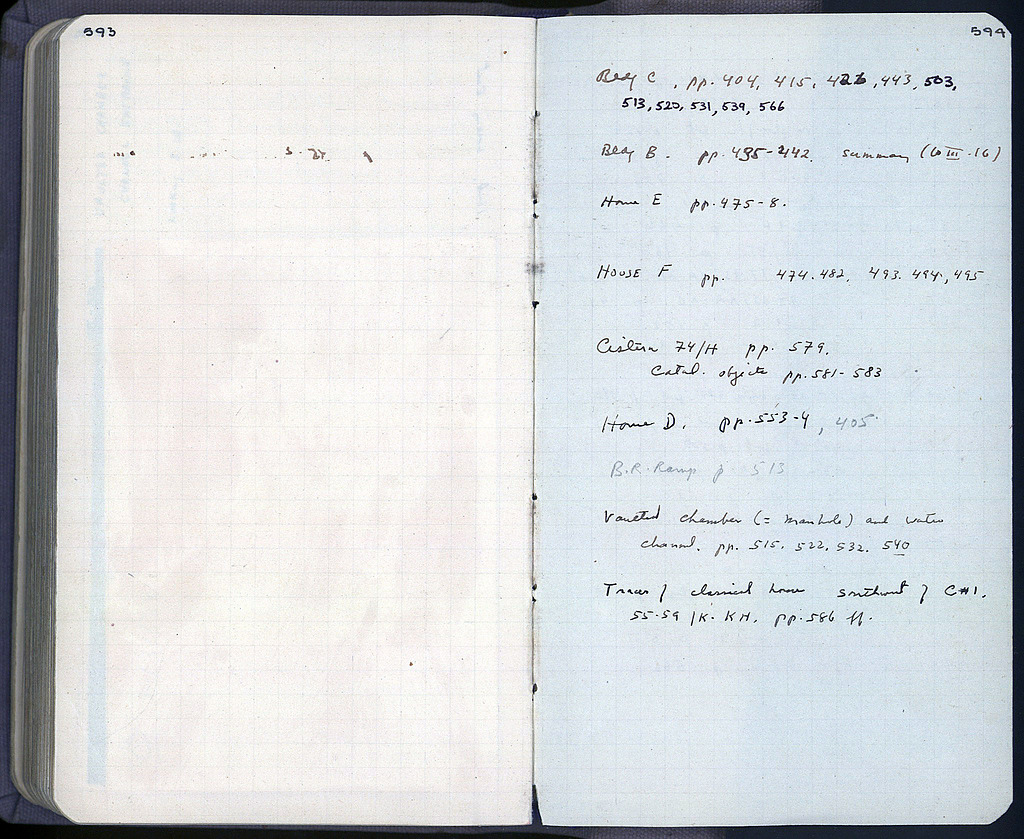 593
594
Bldg C, pp. 404, 415, 426, 443, 503,
513, 520, 531, 539, 566
Bldg B. pp. 435-442. summary (10 III-16)
House E pp. 475-8.
House F pp. 474. 482. 493. 494, 495
Cistern 74/H pp. 579.
Catal. objects pp. 581-583
House D. pp. 553-4, 405
B.R. Ramp p 513
Vaulted chamber (= manhole) and water
channel. pp. 515. 522. 532. 540
Traces of classical house southwest of C#1.
55-59 /K-KH. pp. 586 ff.